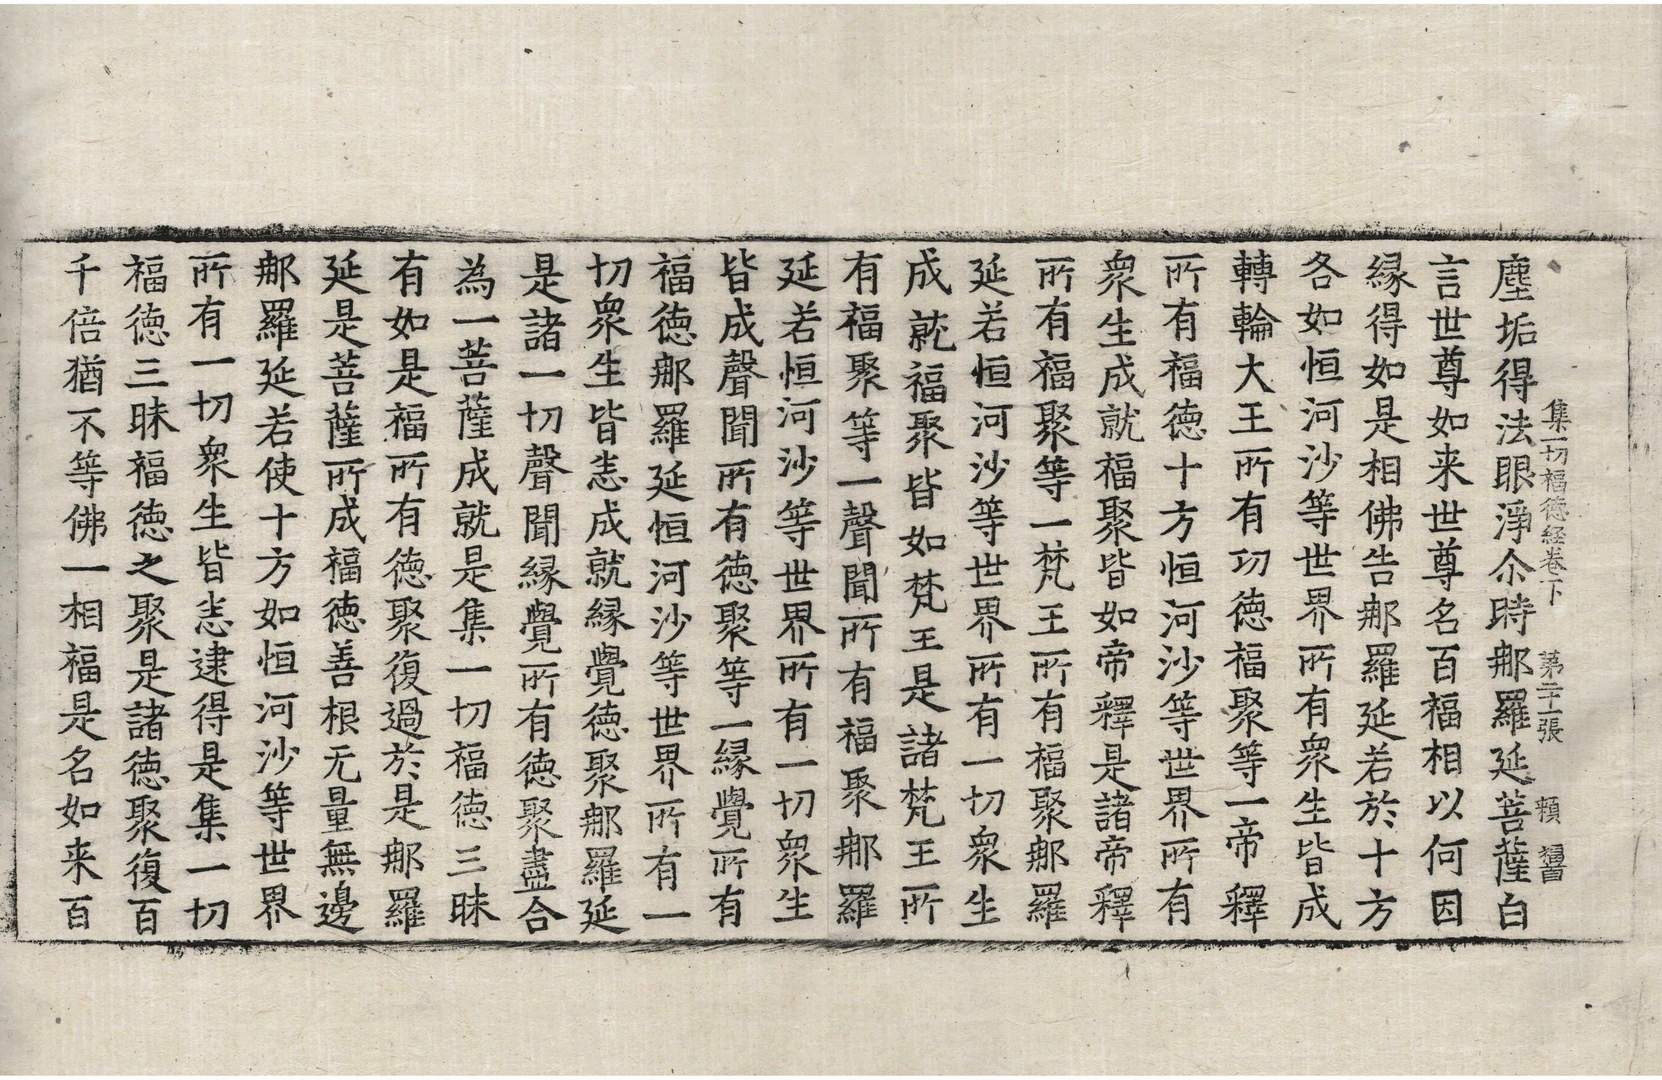 集一切福德経卷下 第二十一張 頼
塵垢得法眼淨尒時那羅延菩薩白
言世尊如来世尊名百福相以何因
縁得如是相佛告那羅延若於十方
各如恒河沙等世界所有衆生皆成
轉輪大王所有功德福聚等一帝釋
所有福德十方恒河沙等世界所有
衆生成就福聚皆如帝釋是諸帝釋
所有福聚等一梵王所有福聚那羅
延若恒河沙等世界所有一切衆生
成就福聚皆如梵王是諸梵王所
有福聚等一聲聞所有福聚那羅
延若恒河沙等世界所有一切衆生
皆成聲聞所有德聚等一縁覺所有
福德那羅延恒河沙等世界所有一
切衆生皆悉成就縁覺德聚那羅延
是諸一切聲聞縁覺所有德聚盡合
為一菩薩成就是集一切福德三昧
有如是福所有德聚復過於是那羅
延是菩薩所成福德善根无量無邊
那羅延若使十方如恒河沙等世界
所有一切衆生皆悉逮得是集一切
福德三昧福德之聚是諸德聚復百
千倍猶不等佛一相福是名如来百